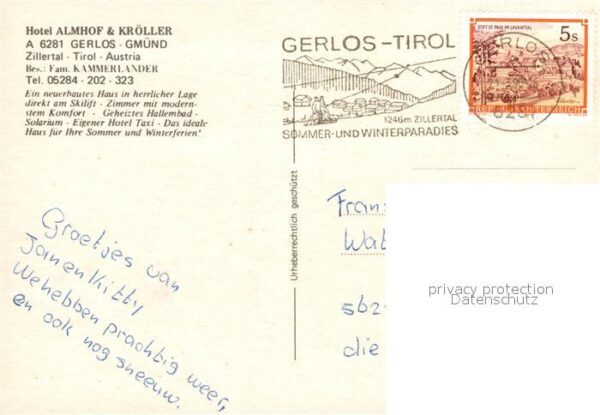 Hotel ALMHOF & KRÖLLER
A 6281 GERLOS · GMÜND
Zillertal · Tirol · Austria
Bes.: Fam. KAMMERLANDER
Tel. 05284 · 202 · 323
Ein neuerbautes Haus in herrlicher Lage
direkt am Skilift · Zimmer mit modern-
stem Komfort · Geheiztes Hallenbad ·
Solarium · Eigener Hotel Taxi · Das ideale
Haus für Ihre Sommer und Winterferien!
GERLOS-TIROL
1246m ZILLERTAL
SOMMER-UND WINTERPARADIES
STIFT ST. PAUL IM LAVANTTAL
5s
REPUBLIK ÖSTERREICH
Urheberrechtlich geschützt
Groetjes van
Jan en Kitty
We hebben prachtig weer,
en ook nog sneeuw.
Fran
Wat
die
privacy protection
Datenschutz